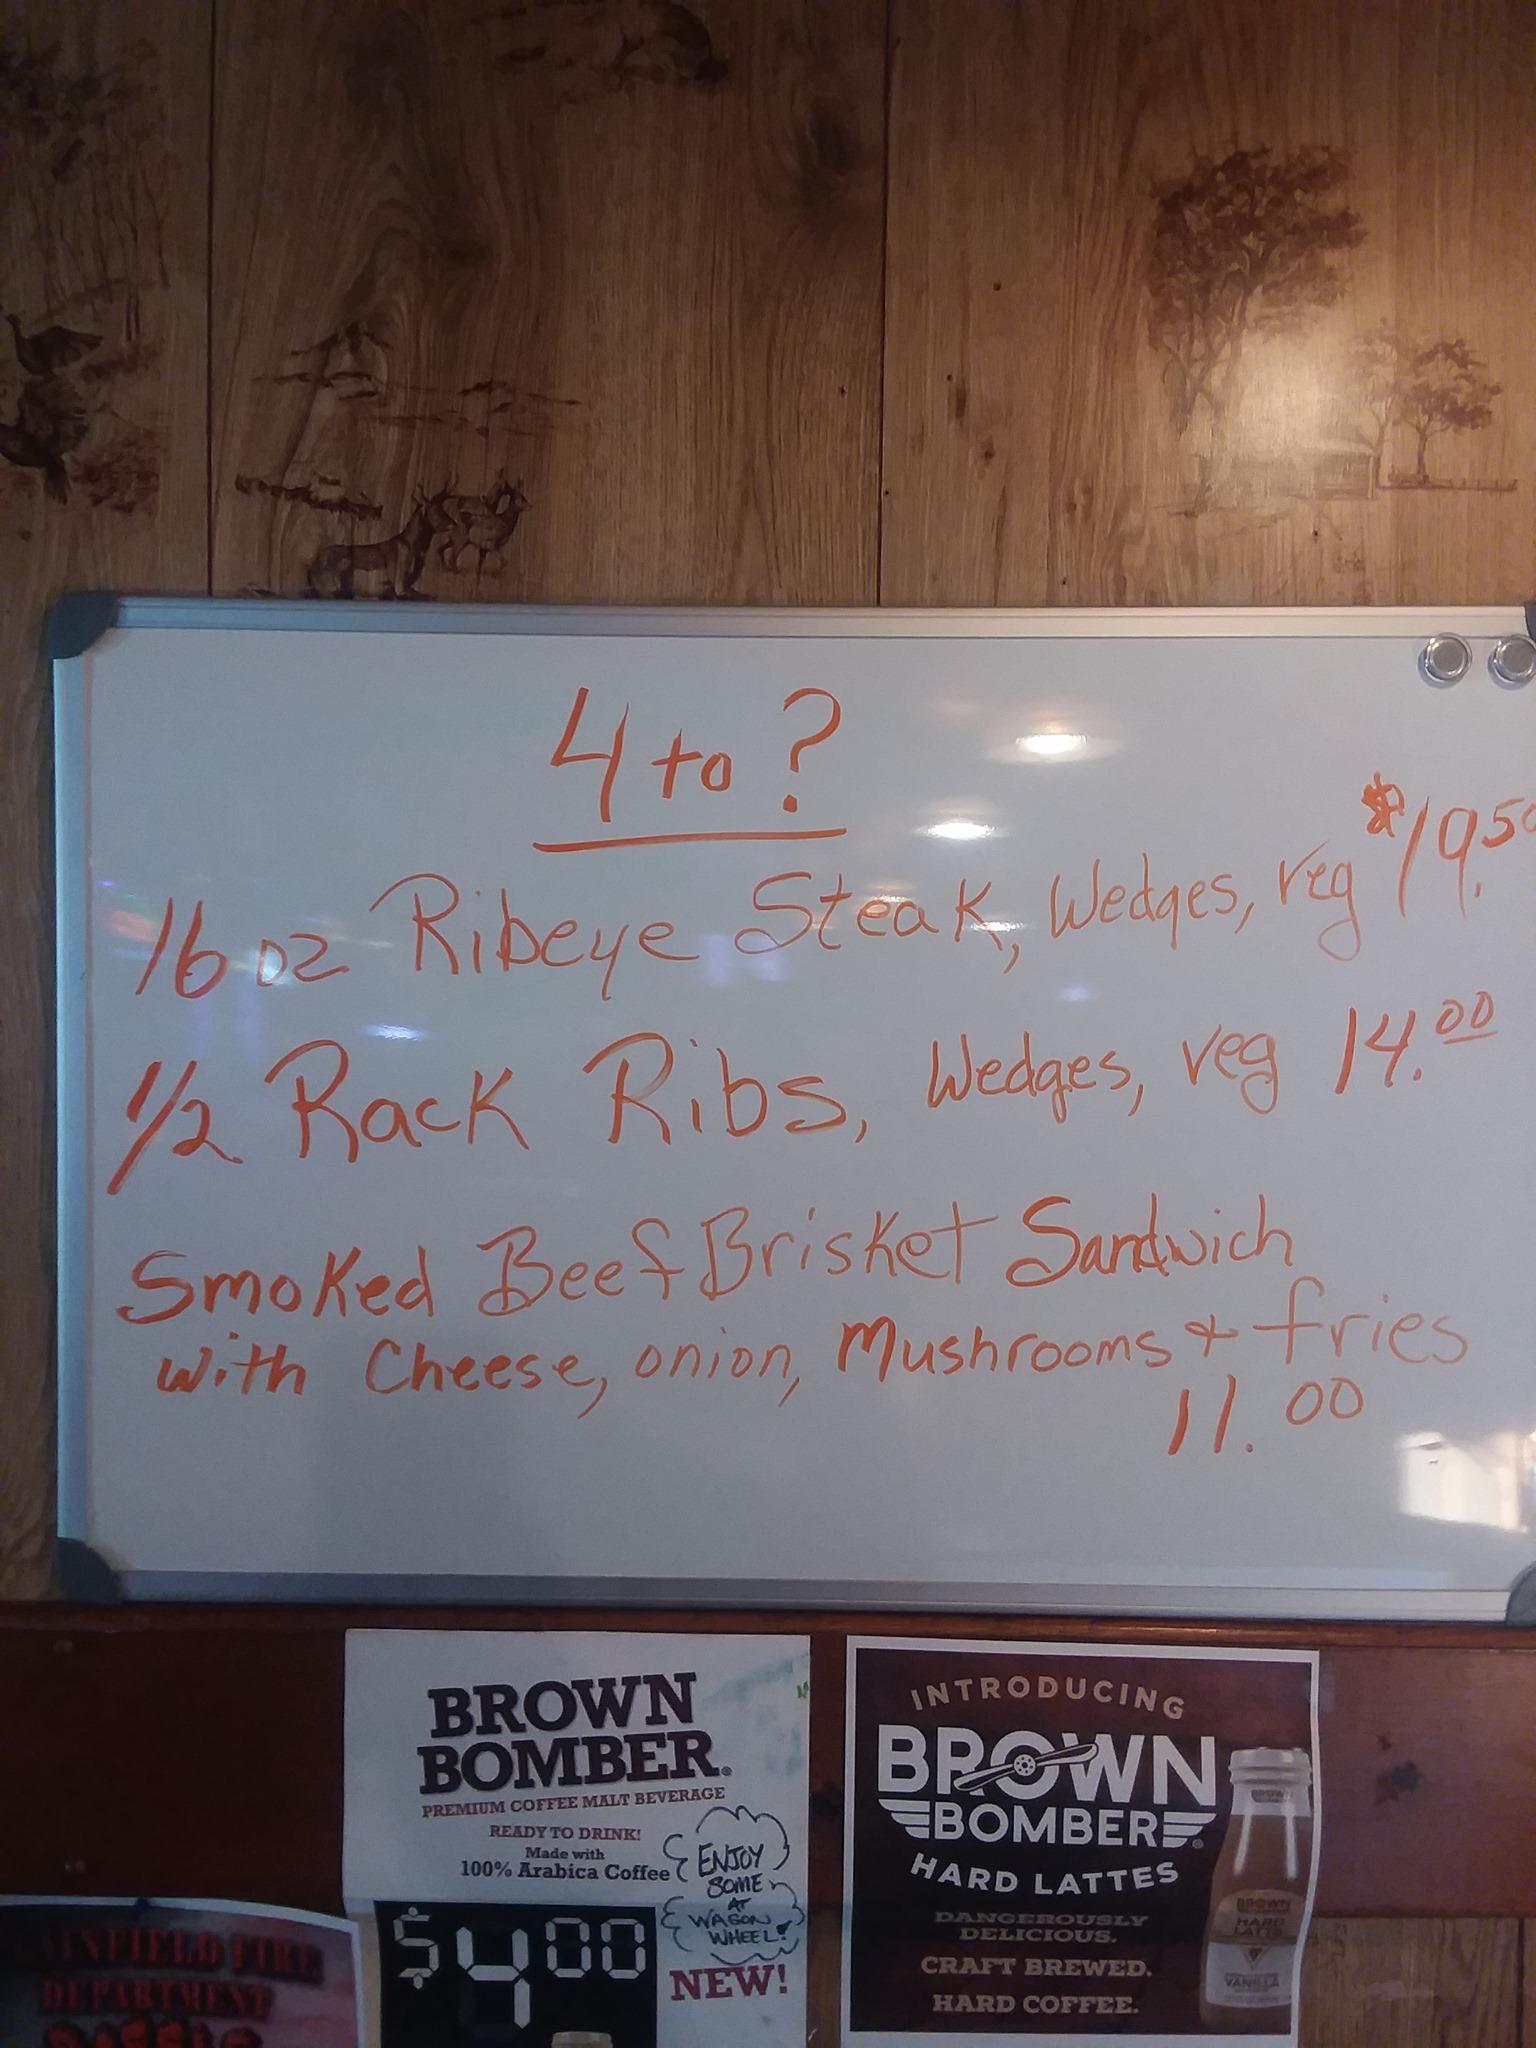 4 to ?
16 oz Ribeye Steak, Wedges, veg $19.50
1/2 Rack Ribs, Wedges, veg 14.00
Smoked Beef Brisket Sandwich
with Cheese, onion, Mushrooms & fries
11.00
BROWN
BOMBER®
PREMIUM COFFEE MALT BEVERAGE
READY TO DRINK!
Made with
100% Arabica Coffee
ENJOY
SOME
AT
WAGON
WHEEL!
$4.00
NEW!
INTRODUCING
BROWN
BOMBER®
HARD LATTES
DANGEROUSLY
DELICIOUS.
CRAFT BREWED.
HARD COFFEE.
BROWN
BOMBER
BROWN
BOMBER
HARD
LATTE
VANILLA
FIRE
DEPARTMENT